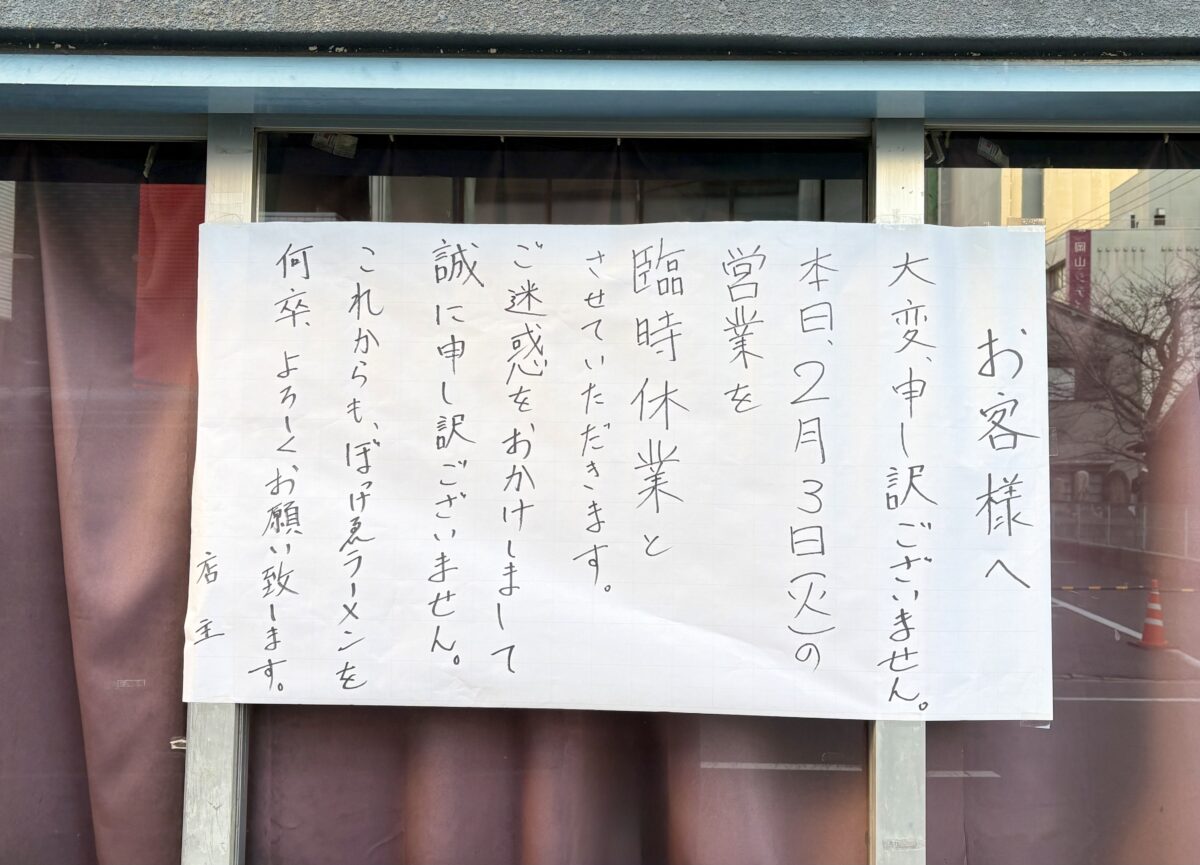 お客様へ
大変、申し訳ございません。
本日、2月3日(火)の
営業を
臨時休業と
させていただきます。
ご迷惑をおかけしまして
誠に申し訳ございません。
これからも、ぼっけゑラーメンを
何卒、よろしくお願い致します。
店主
岡山シティ